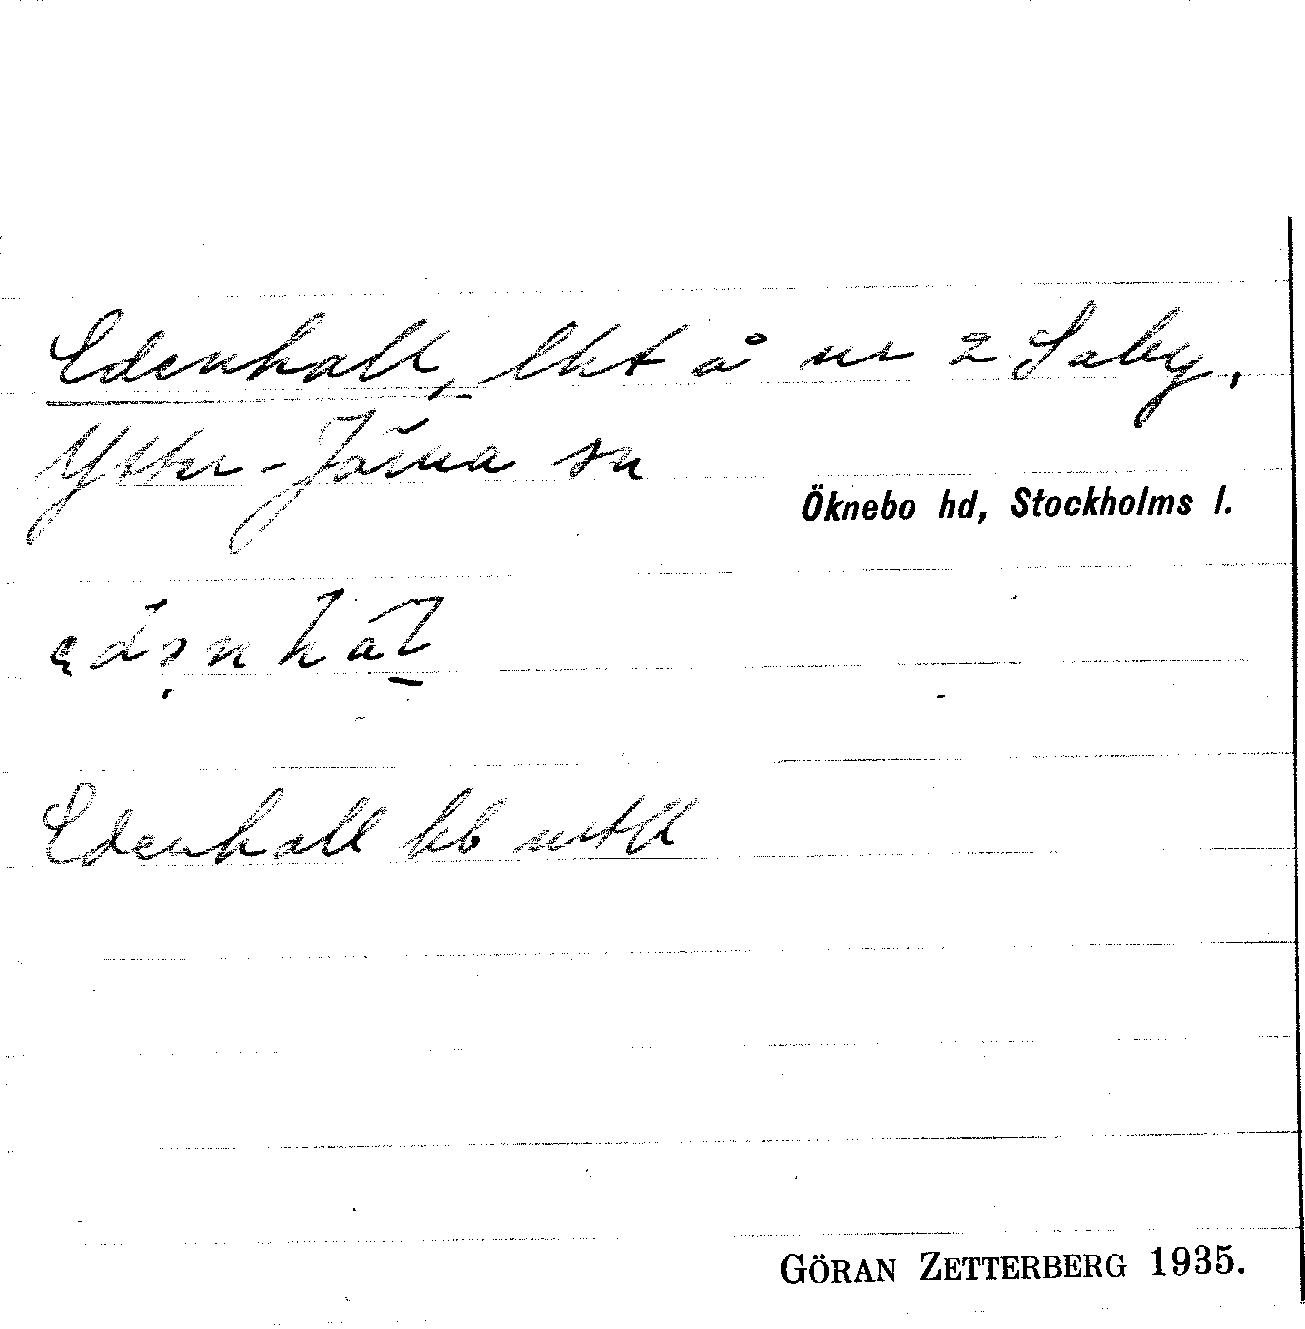 Edenhall, lht å nr 2 Saby,
Ytter-Järna sn
Öknebo hd, Stockholms l.
Edenhall
GÖRAN ZETTERBERG 1935.